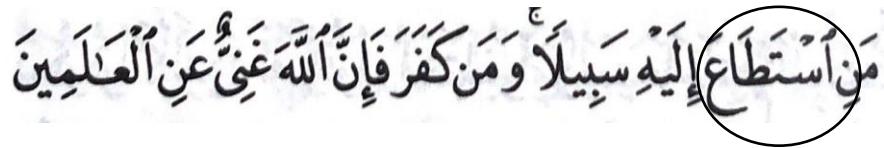 مَنِ ٱسْتَطَاعَ إِلَيْهِ سَبِيلًاۚ وَمَن كَفَرَ فَإِنَّ ٱللَّهَ غَنِىٌّ عَنِ ٱلْعَـٰلَمِينَ